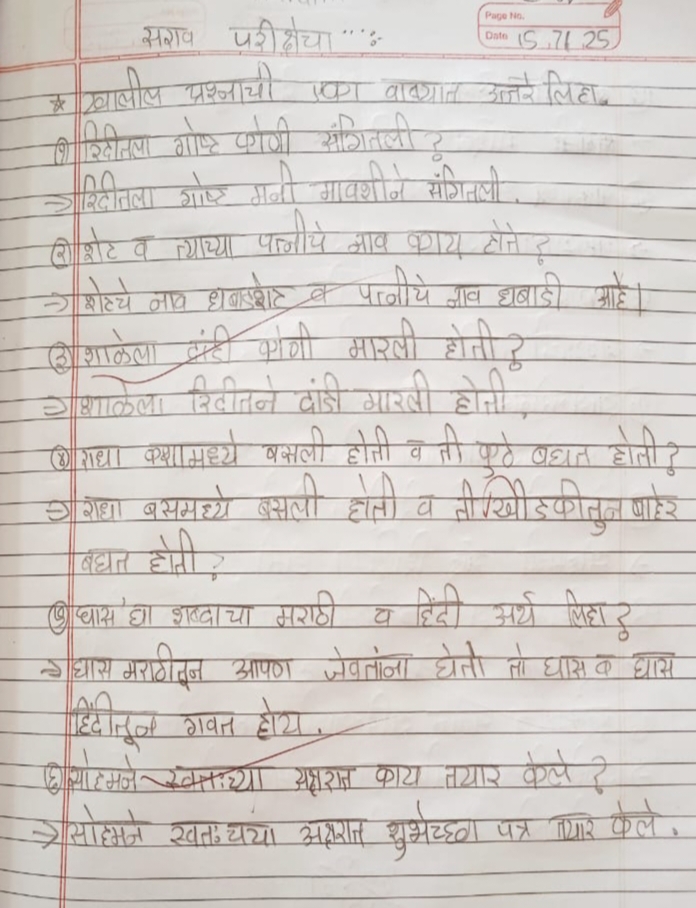 सराव परीक्षेचा
Page No.
Date 15.7.25
* खालील प्रश्नाची एका वाक्यात उत्तरे लिहा.
१) रिदीतला गोष्ट कोणी संगितली?
→ रिदीतला गोष्ट मनी मावशीने संगितली.
२) शेट व त्याच्या पत्नीचे नाव काय होते?
→ शेटचे नाव धबाडशेट व पत्नीचे नाव धबाडी आहे।
३) शाळेला दांडी कोणी मारली होती?
→ शाळेला रिदीतने दांडी मारली होती.
४) राधा कशामध्ये बसली होती व ती कुठे बघत होती?
→ राधा बसमध्ये बसली होती व ती खिडकीतुन बाहेर
बघत होती?
५) घास 'ह्या शब्दाचा मराठी व हिंदी अर्थ लिहा?
→ घास मराठीतून आपण जेवतांना घेतो तो घास व घास
हिंदीतून गवत होय.
६) सोहमने स्वतःच्या अक्षरात काय तयार केले?
→ सोहमने स्वतःचया अक्षरात शुभेच्छा पत्र तयार केले.